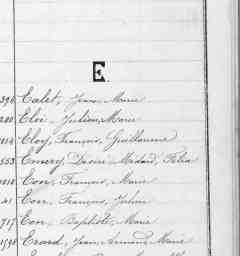 E.
396 Ealet, Jean, Marie
280 Eloi, Julien, Marie
1214 Eloy, François, Guillaume
553 Emery, Désiré, Médard, Félix
1212 Eon, François, Marie
41 Eon, François, Julien
717 Eon, Baptiste, Marie
1598 Erard, Jean, Armand, Marie